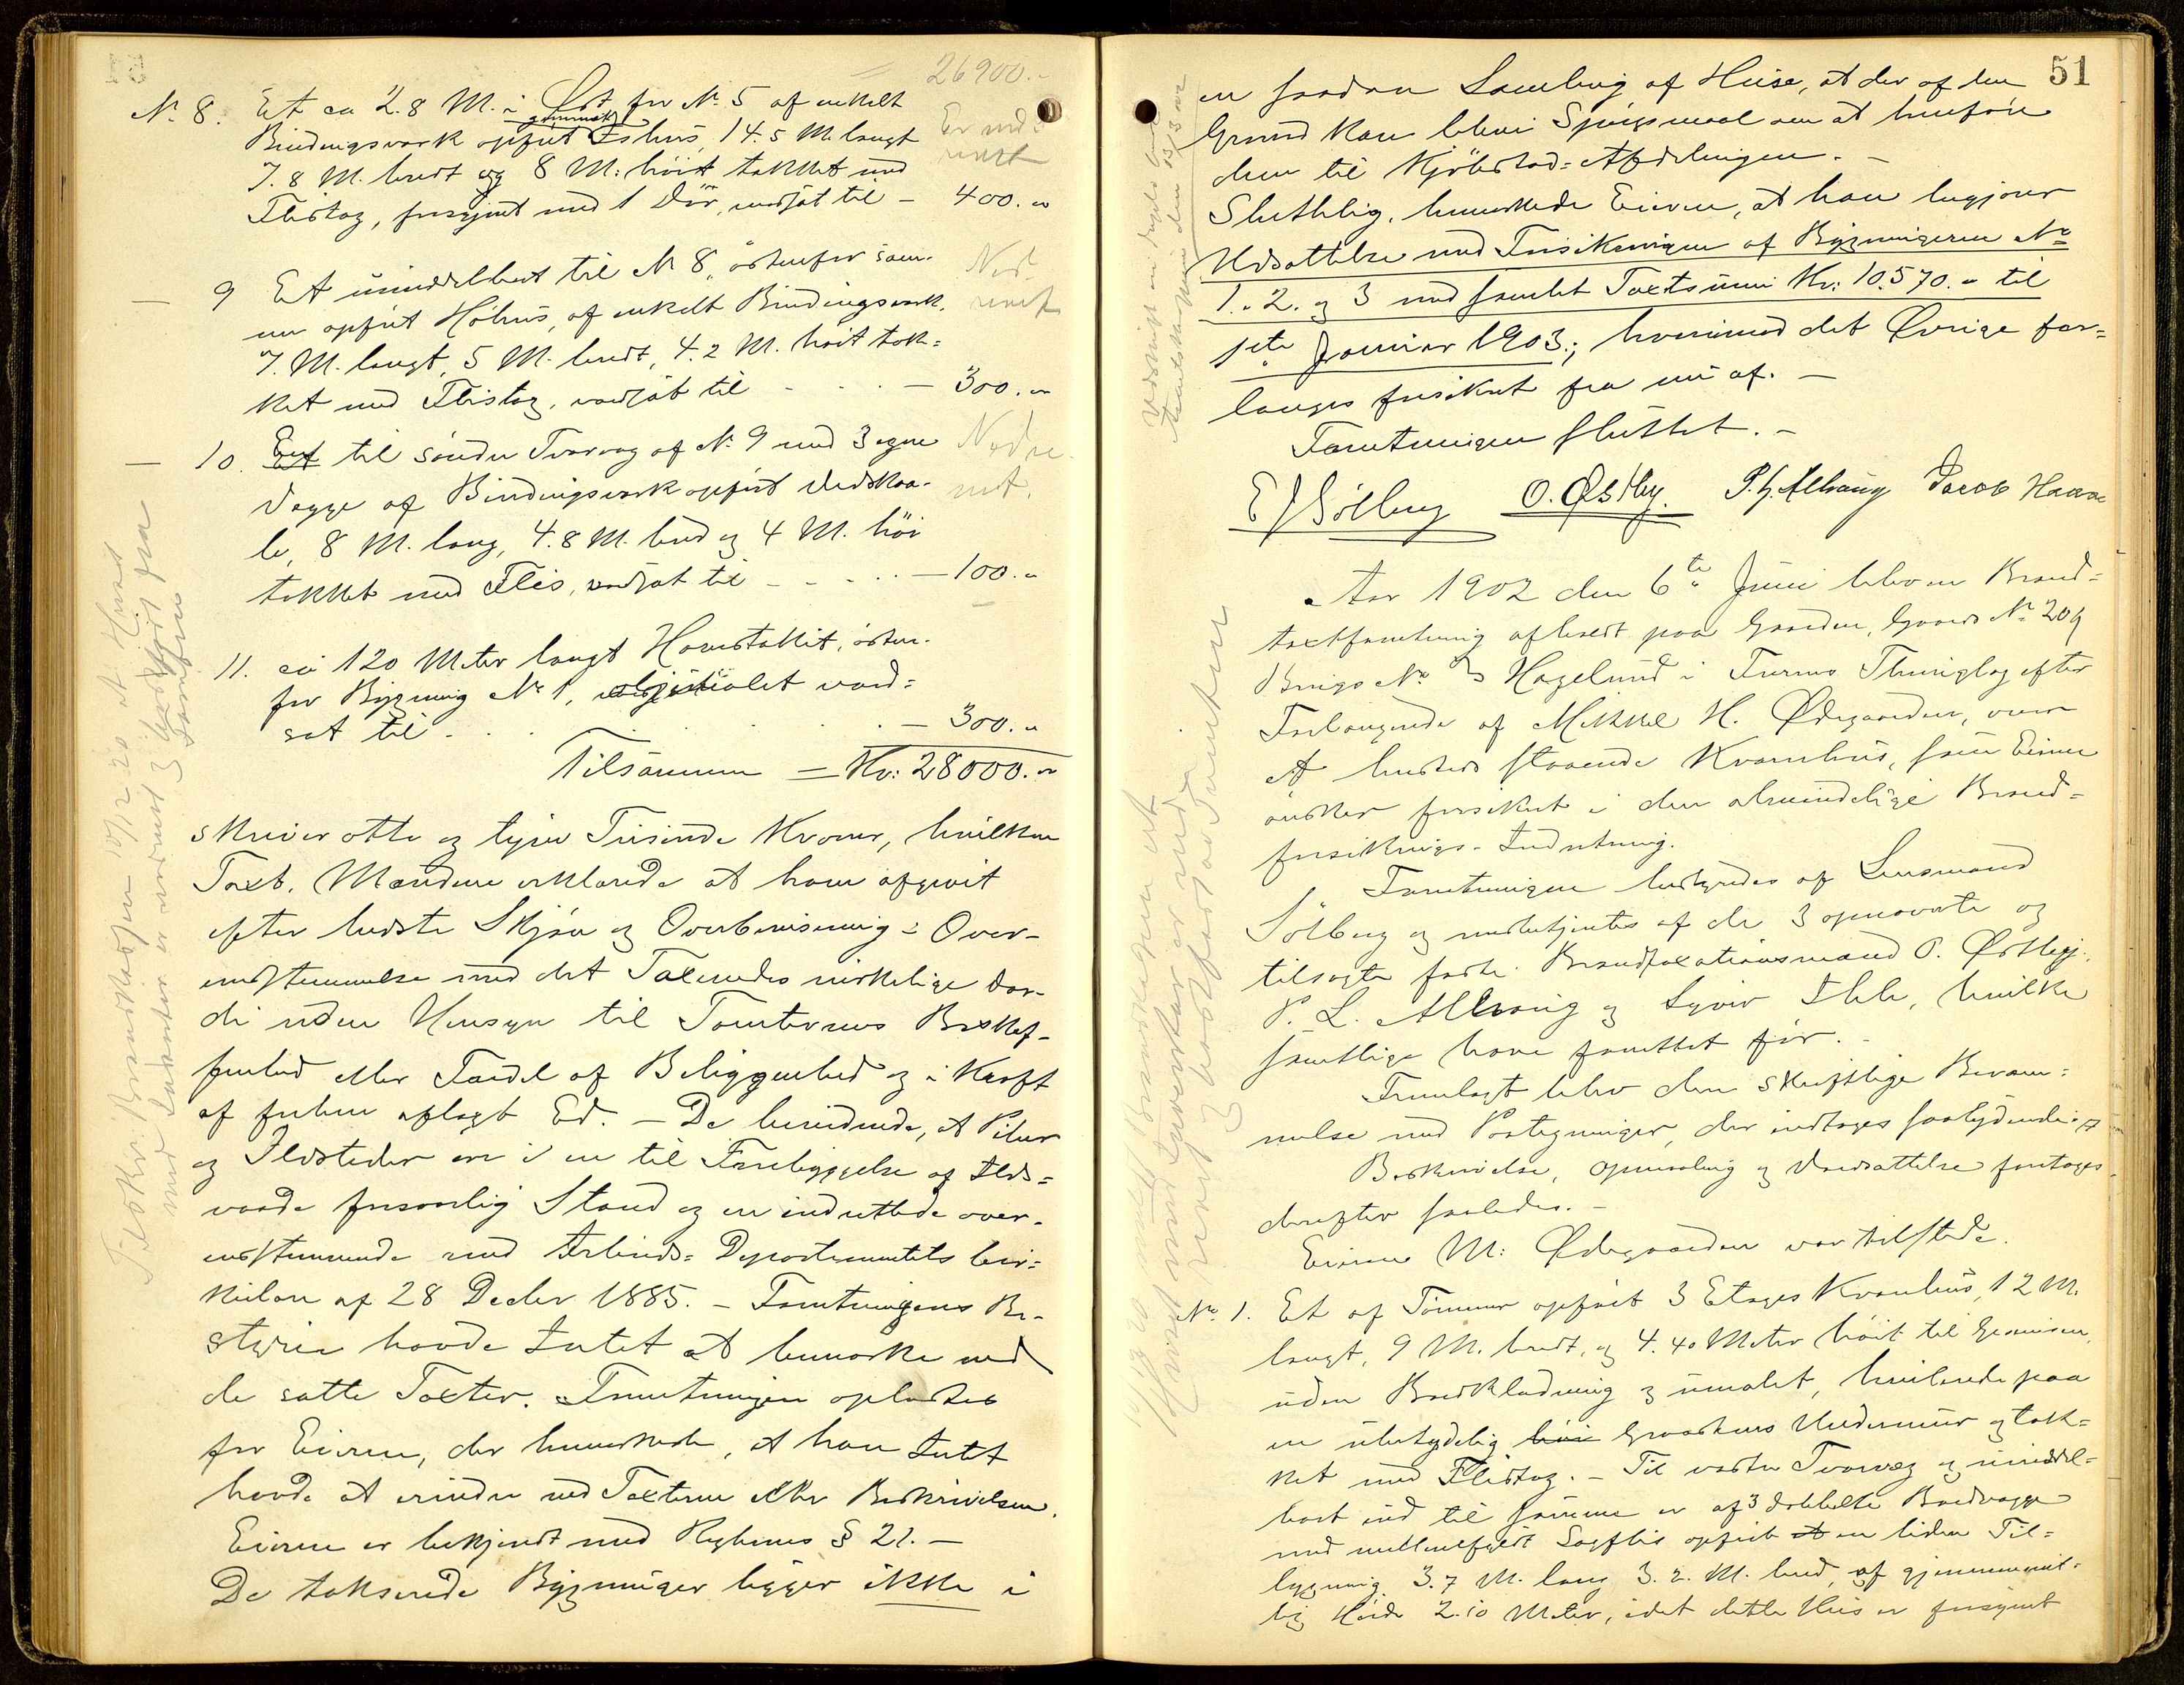 26900.-
No 8. Et ca 2.8 M. i Øst for No 5 af enkelt
Bindingsværk opført gammelt Ishus, 14.5 M. langt
7.8 M. bredt og 8 M. høit tækket med
Flistag, forsynet med 1 Dør, værdsat til - 400. "
Er ned-
revet
- 9 Et umiddelbart til No 8, østenfor sam-
me opført Høhus, af enkelt Bindingsværk,
7. M. langt, 5 M. bredt, 4.2 M. høit tæk=
ket med Flistag, værdsat til - 300. "
Ned
revet
- 10. En til søndre Tværvæg af No 9 med 3 egne
Vægge af Bindingsværk opført Vedskaa-
le, 8 M. lang, 4.8 M. bred og 4 M. høi
tækket med Flis, værdsat til - 100. "
Nedre
vet.
11. ca 120 Meter langt Havestakit, østen-
for Bygning No 1, oljemalet værd=
sat til - 300. "
Tilsammen = Kr: 28000. "
skriver otte og tyve Tusinde Kroner, hvilken
Taxt. Mændene erklærede at have afgivet
efter bedste Skjøn og Overbevisning i Over-
ensstemmelse med det Taxeredes virkelige Vær-
di uden Hensyn til Tomternes Beskaf-
fenhed eller Fordel af Beliggenhed og i Kraft
af forhen aflagt Ed. - De bevidnede, at Piber
og Ildsteder ere i en til Forebyggelse af Ilds=
vaade forsvarlig Stand og er indrettede over-
ensstemmende med Arbeids=Departementets Cir=
kulære af 28 Decbr 1885. - Forretningens Be-
styrer havde Intet at bemærke ved
de satte Taxter. Forretningen oplæstes
for Eieren, der bemærkede, at han Intet
havde at erindre ved Taxterne eller Beskrivelsen.
Eieren er bekjendt med Reglernes § 21. -
De takserede Bygninger ligger ikke i
51
en saadan Samling af Huse, at der af den
Grund kan blive Spørgsmaal om at henføre
dem til Kjøbstad=Afdelingen. -
Sluttelig, bemærkede Eieren, at han begjærer
Udsættelse med Forsikringen af Bygningerne No
1. 2. og 3 med samlet Taxtsum Kr: 10.570. " til
1ste Januar 1903; hvorimod det Øvrige for=
langes forsikret fra nu af. -
Forretningen sluttet. -
E Sølberg O. Østby. P. L. Alhaug Jacob
Aar 1902 den 6te Juni blev en Brand=
taxtforretning afholdt paa Gaarden, Gaards No 209
Brugs No 3 Hagelund i Furnes Thinglag efter
Forlangende af Mikkel H. Ødegaarden, over
et herstedts staaende Kværnhus, som Eieren
ønsker forsikret i den almindelige Brand=
forsikrings-Indretning.
Forretningen bestyredes af Lensmand
Sølberg og medbetjentes af de 3 opnævnte og
tilsagte faste Brandtaxationsmænd O. Østby,
P. L. Alhaug og Syver Ihle, hvilke
samtlige have forrettet før. -
Fremlagt blev den skriftlige Beram=
melse med Paategninger, der indtages saalydende:
Beskrivelse, Opmaaling og Værdsættelse foretoges
derefter saaledes. -
Eieren M: Ødegaarden var tilstede.
No 1. Et af Tømmer opført 3 Etages Kværnhus, 12 M.
langt, 9 M. bredt, og 4.40 Meter høit til Gesimsen,
uden Bordklædning og umalet, hvilende paa
en ubetydelig høi Graastens Undermur og tæk=
ket med Flistag. - Til vestre Tværvæg og umiddel=
bart ind til samme er af 3 dobbelte Bordvægge
med mellemfyldt Sagflis opført et en liden Til=
bygning 3.7 M. lang 3.2. M. bred, af gjennemsnit-
lig Høide 2.10 Meter, idet dette Hus er forsynet